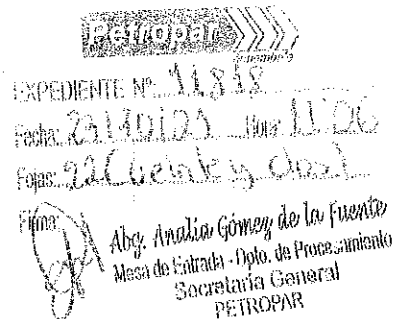 Petropar
EXPEDIENTE Nº: 11818
Fecha: 29/10/21 Hora: 11:06
Fojas: 22 (veinte y dos)
Firma:
Abg. Analia Gómez de la Fuente
Mesa de Entrada - Dpto. de Procesamiento
Secretaría General
PETROPAR